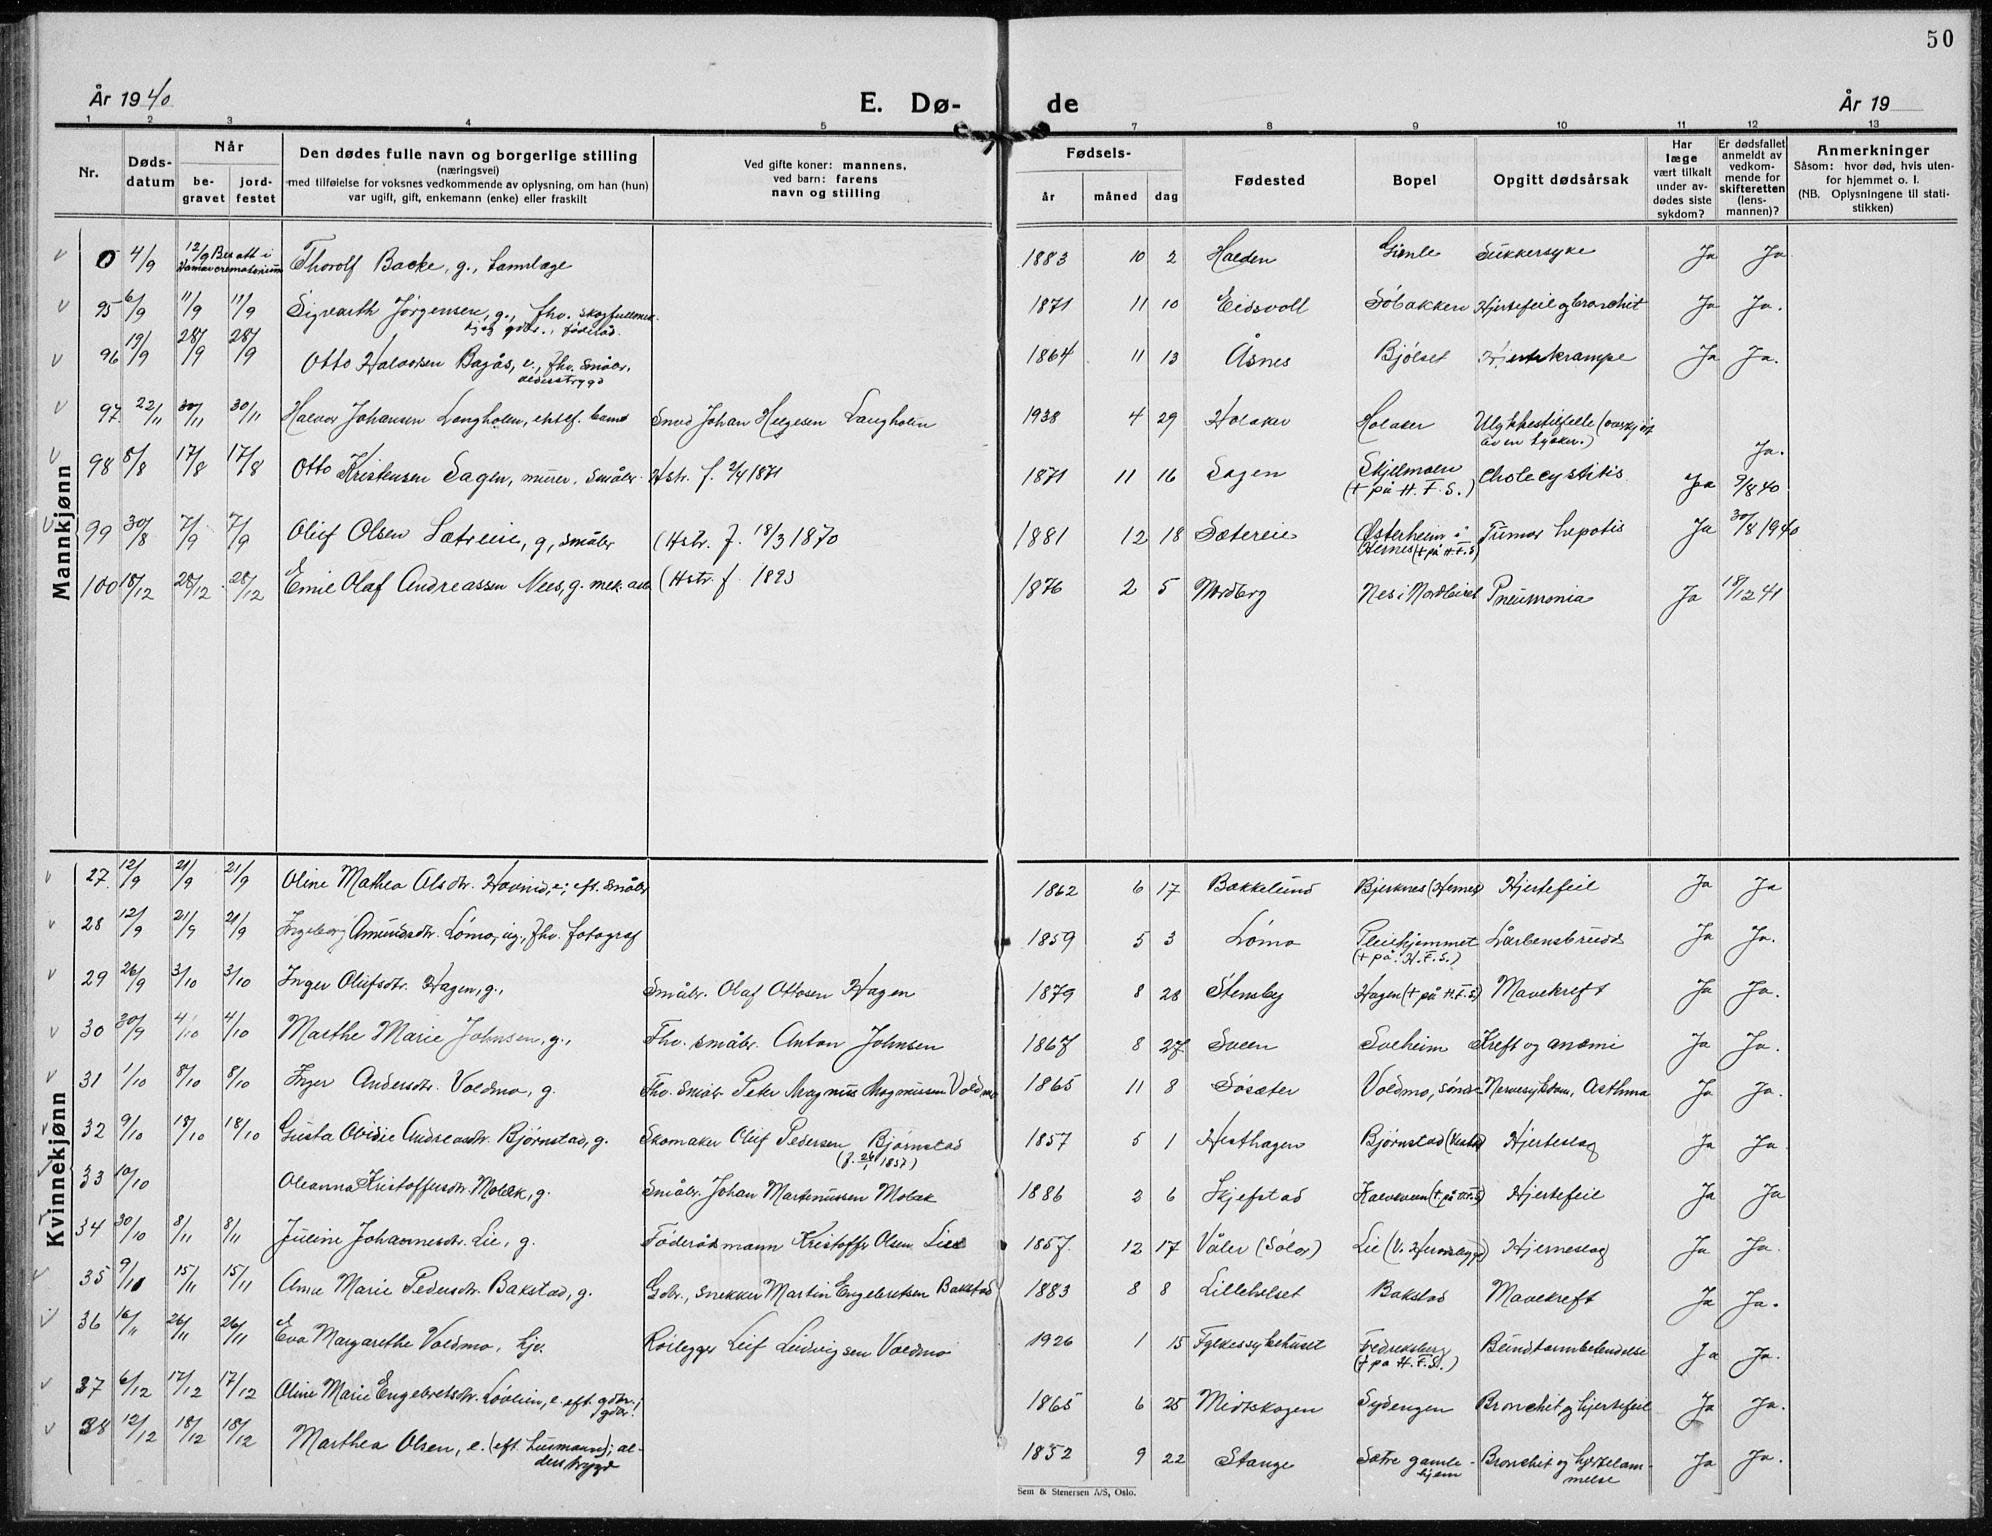 50
År 1940 E. Dø- de År 19
1 2 3 4 5 7 8 9 10 11 12 13
Nr. Døds-datum Når be-gravet jord-festet Den dødes fulle navn og borgerlige stilling (næringsvei) med tilføielse for voksnes vedkommende av oplysning, om han (hun) var ugift, gift, enkemann (enke) eller fraskilt Ved gifte koner: mannens, ved barn: farens navn og stilling Fødsels- år måned dag Fødested Bopel Opgitt dødsårsak Har læge vært tilkalt under av-dødes siste sykdom? Er dødsfallet anmeldt av vedkom-mende for skifteretten (lens-mannen)? Anmerkninger Såsom: hvor død, hvis uten-for hjemmet o. l. (NB. Oplysningene til stati-stikken)
Mannkjønn
0 4/9 12/9 Bisatt i Hamar crematorium Thorolf Backe, g., 1883 10 2 Halden Sukkersyke Ja Ja
95 6/9 11/9 11/9 Sigvarth Jørgensen, g., fhv. skogfullmek. 1871 11 10 Eidsvoll Søbakken Hjertefeil og bronchit Ja Ja.
96 19/9 28/9 28/9 Otto Halvorsen Bagås, e., fhv. småbr. alderstrygd 1864 11 13 Åsnes Bjølset Hjertekrampe Ja Ja.
97 22/11 30/11 30/11 Halvor Johansen Langholen, ektef. barn Smed Johan Helgesen Langholen 1938 4 29 Holaker Holaker Ulykkestilfelle (overkjørt av en lysker.) Ja.
98 8/8 17/8 17/8 Otto Kristensen Sagen, murer, småbr. Hstr. f. 2/4 1871 1871 11 16 Sagen Skjellmoen (+ på H.F.S.) Cholecystitis Ja 9/8 40
99 30/8 7/9 7/9 Oluf Olsen Sætereie, g, småbr (Hstr. f. 18/3 1870 1881 12 18 Sætereie Østerheim i Hernes (+ på H.F.S) Tumor hepatis Ja 30/8 1940
100 18/12 28/12 28/12 Emil Olaf Andreassen Nees, g. mek. arb (Hstr. f. 1893 1876 2 5 Nordberg Nes i Nordleiret Pneumonia Ja 18/12 41
Kvinnekjønn
27 12/9 21/9 21/9 Oline Mathea Olsdtr. Hovind, e; eft. småbr 1862 6 17 Bakkelund Bjerknes (Hernes) Hjertefeil Ja Ja
28 12/9 21/9 21/9 Ingeborg Amundsdtr. Lømo, ug., fhv. fotograf 1859 5 3 Lømo Pleiehjemmet (+ på H.F.S.) Lårbensbrudd Ja Ja.
29 26/9 3/10 3/10 Inger Olufsdtr. Hagen, g., Småbr. Olaf Ottosen Hagen 1879 8 28 Stensby Hagen (+ på H.F.S) Mavekreft Ja Ja.
30 30/9 4/10 4/10 Marthe Marie Johnsen, g., Fhv. småbr. Anton Johnsen 1867 8 27 Sveen Solheim Kreft og anæmi Ja Ja.
31 1/10 8/10 8/10 Inger Andersdtr. Voldmo, g. Fhv. småbr Peter Magnus Magnussen Voldmo 1865 11 8 Søsæter Voldmo, søndre Nervesykdom, Asthma Ja Ja.
32 9/10 18/10 18/10 Gusta Ovidie Andreasdtr. Bjørnstad, g. Skomaker Oluf Pedersen Bjørnstad (f. 26/1 1857) 1857 5 1 Hesthagen Bjørnstad (Vestad) Hjerteslag Ja Ja
33 10/10 Oleanna Kristoffersdtr. Mobæk, g. Småbr. Johan Martinussen Mobæk 1886 2 6 Skjefstad Kalvkveen (+ på H.F.S) Hjertefeil Ja Ja
34 30/10 8/11 8/11 Juline Johannesdtr. Lie, g. Føderådsmann Kristoffer Olsen Lie 1857. 12 17 Våler (Solør) Lie (V. Hernsbygd) Hjerneslag Ja Ja.
35 9/11 15/11 15/11 Anne Marie Pedersdtr. Bakstad, g. Gbr., snekker Martin Engebretsen Bakstad 1883 8 8 Lillehelset Bakstad Mavekreft Ja Ja.
36 16/11 26/11 26/11 Eva Margarethe Voldmo, hjv. Rørlegger Leif Ludvigsen Voldmo 1926 1 15 Fylkessykehuset Fredriksberg (+ på H.F.S.) Blindtarmbetendelse Ja Ja.
37 6/12 17/12 17/12 Oline Marie Engebretsdtr. Løvlien, e. eft. gbr. 1865 6 25 Midtskogen Sydengen Bronchit og hjertefeil Ja Ja.
38 12/12 18/12 18/12 Marthea Olsen, e. (eft. husmann); al-derstrygd 1852 9 22 Stange Sætre gamle-hjem Bronchit og hjertelam-melse Ja Ja.
Sem & Stenersen A/S, Oslo.